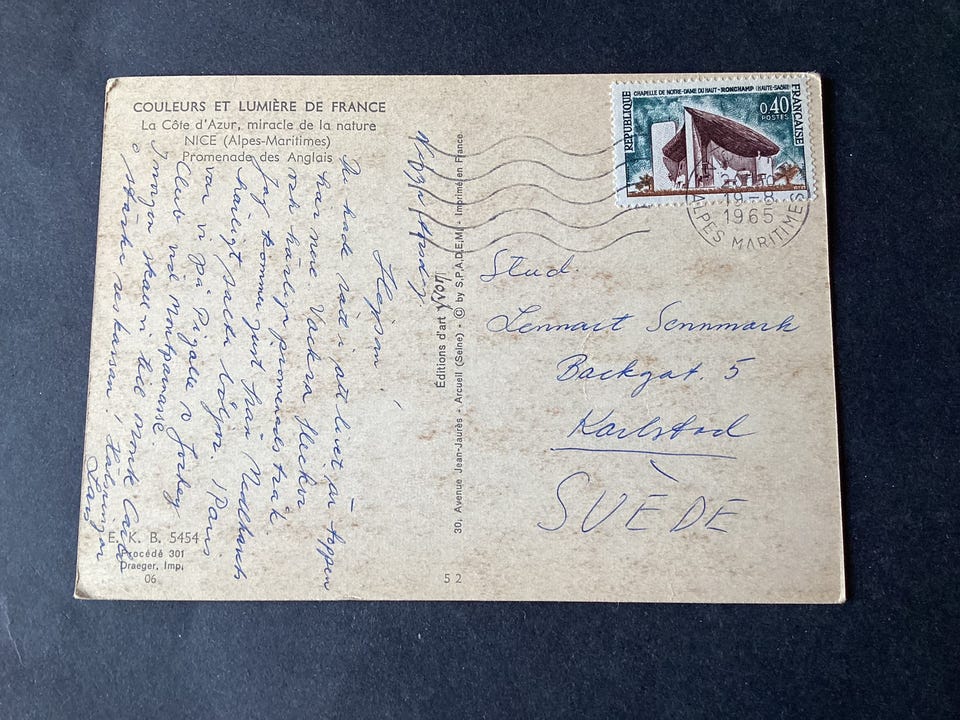 COULEURS ET LUMIÈRE DE FRANCE
La Côte d'Azur, miracle de la nature
NICE (Alpes-Maritimes)
Promenade des Anglais
Hejsan!
Du hade rätt i att livet är toppen
här nere. Vackra flickor
och härliga promenadstråk.
Jag kommer just från
härligt, vågor. I Paris
var vi på Pigalle &
Club vid Montparnasse
Imorgon skall vi till Monte Carlo
& Hälsningar
Lars
E. K. B. 5454
Procédé 301
Draeger, Imp.
06
Éditions d'art YVON
30, Avenue Jean-Jaurès - Arcueil (Seine) - © by S.P.A.D.E.M. - Imprimé en France
52
RÉPUBLIQUE FRANÇAISE
CHAPELLE DE NOTRE-DAME DU HAUT - RONCHAMP (HAUTE-SAÔNE)
0,40
POSTES
1965
ALPES MARITIMES
Stud.
Lennart Sennmark
Backgat. 5
Karlstad
SUÈDE